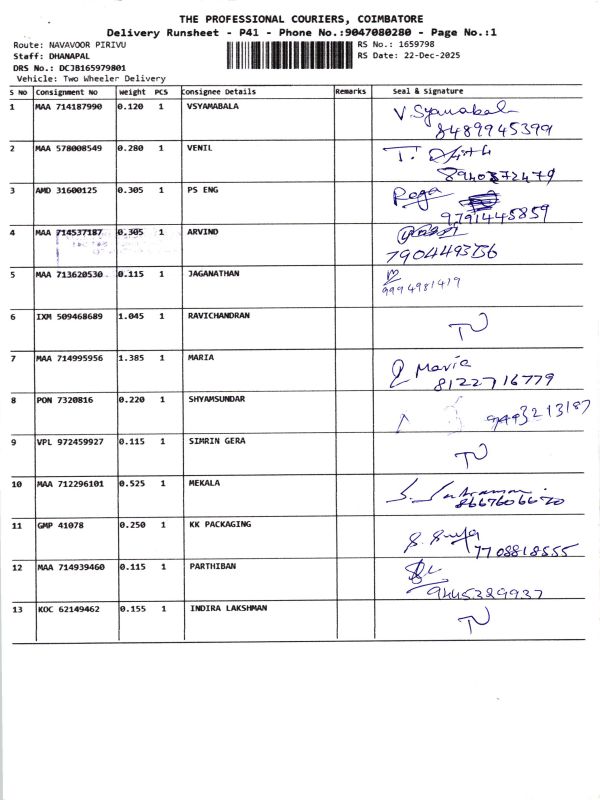 THE PROFESSIONAL COURIERS, COIMBATORE
Delivery Runsheet - P41 - Phone No.:9047080280 - Page No.:1
Route: NAVAVOOR PIRIVU RS No.: 1659798
Staff: DHANAPAL RS Date: 22-Dec-2025
DRS No.: DCJB165979801
Vehicle: Two Wheeler Delivery
S No Consignment No Weight PCS Consignee Details Remarks Seal & Signature
1 MAA 714187990 0.120 1 VSYAMABALA V Syamabala
8489945399
2 MAA 578008549 0.280 1 VENIL
3 AMD 31600125 0.305 1 PS ENG
9791445859
4 MAA 714537187 0.305 1 ARVIND
5 MAA 713620530 0.115 1 JAGANATHAN
9994981419
6 IXM 509468689 1.045 1 RAVICHANDRAN
7 MAA 714995956 1.385 1 MARIA Maria
8122716779
8 PON 7320816 0.220 1 SHYAMSUNDAR
9493213187
9 VPL 972459927 0.115 1 SIMRIN GERA
10 MAA 712296101 0.525 1 MEKALA
8667606670
11 GMP 41078 0.250 1 KK PACKAGING
7708818555
12 MAA 714939460 0.115 1 PARTHIBAN
9445329937
13 KOC 62149462 0.155 1 INDIRA LAKSHMAN